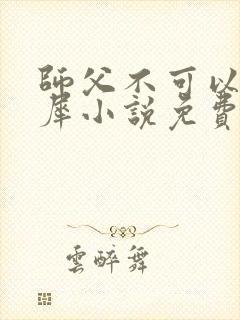 師父不可以
犀小說免費
雲醉舞